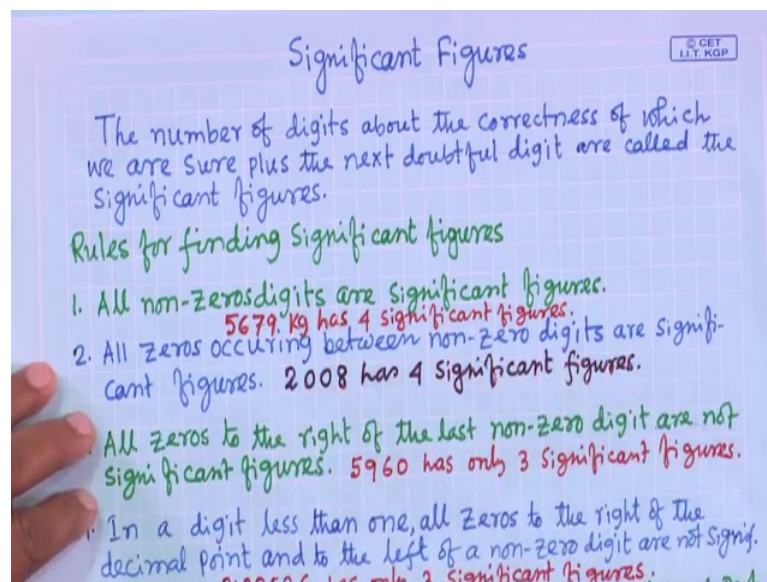 Significant Figures
© CET
I.I.T. KGP
The number of digits about the correctness of which
we are sure plus the next doubtful digit are called the
significant figures.
Rules for finding significant figures
1. All non-zeros digits are significant figures.
5679. Kg has 4 significant figures.
2. All zeros occuring between non-zero digits are signifi-
cant figures. 2008 has 4 significant figures.
All zeros to the right of the last non-zero digit are not
significant figures. 5960 has only 3 significant figures.
In a digit less than one, all zeros to the right of the
decimal point and to the left of a non-zero digit are not signif.
has only 3 significant figures.